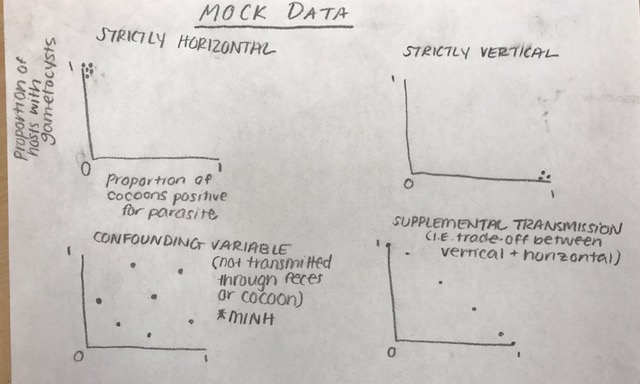 MOCK DATA
STRICTLY HORIZONTAL
Proportion of
hosts with
gametocysts
1
0
1
Proportion of
cocoons positive
for parasite
STRICTLY VERTICAL
1
0
1
CONFOUNDING VARIABLE
(not transmitted
through feces
or cocoon)
*MINH
1
0
1
SUPPLEMENTAL TRANSMISSION
(I.E. trade-off between
vertical + horizontal)
1
0
1